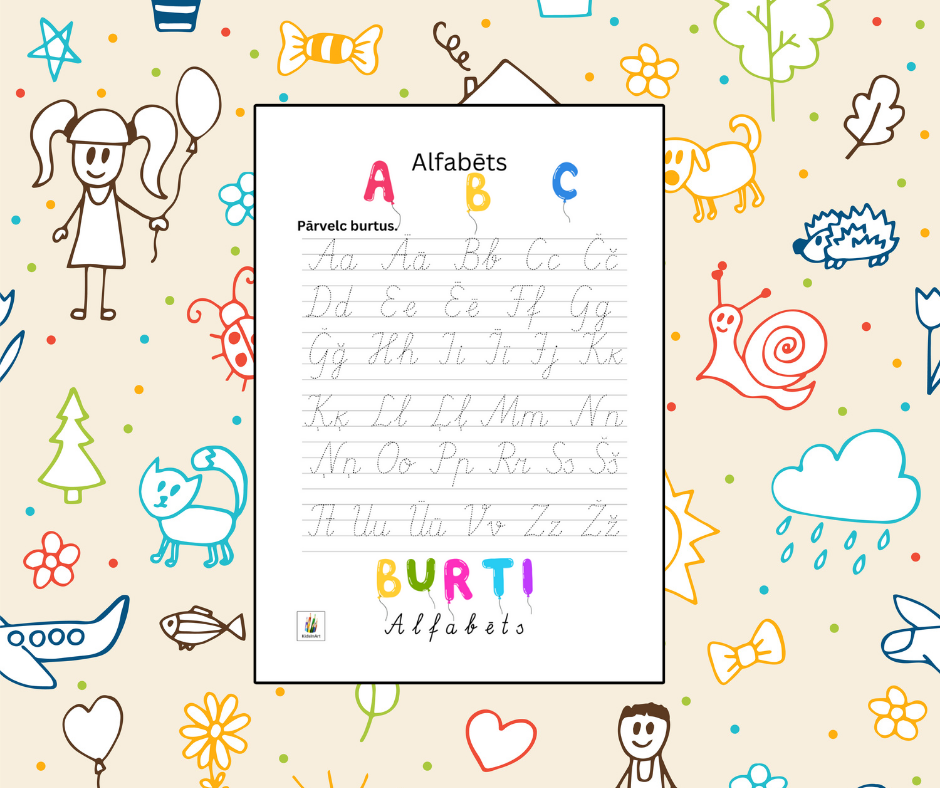 Alfabēts
A B C
Pārvelc burtus.
Aa Āā Bb Cc Čč
Dd Ee Ēē Ff Gg
Ģģ Hh Ii Īī Jj Kk
Ķķ Ll Ļļ Mm Nn
Ņņ Oo Pp Rr Ss Šš
Tt Uu Ūū Vv Zz Žž
BURTI
Alfabēts
KidsInArt